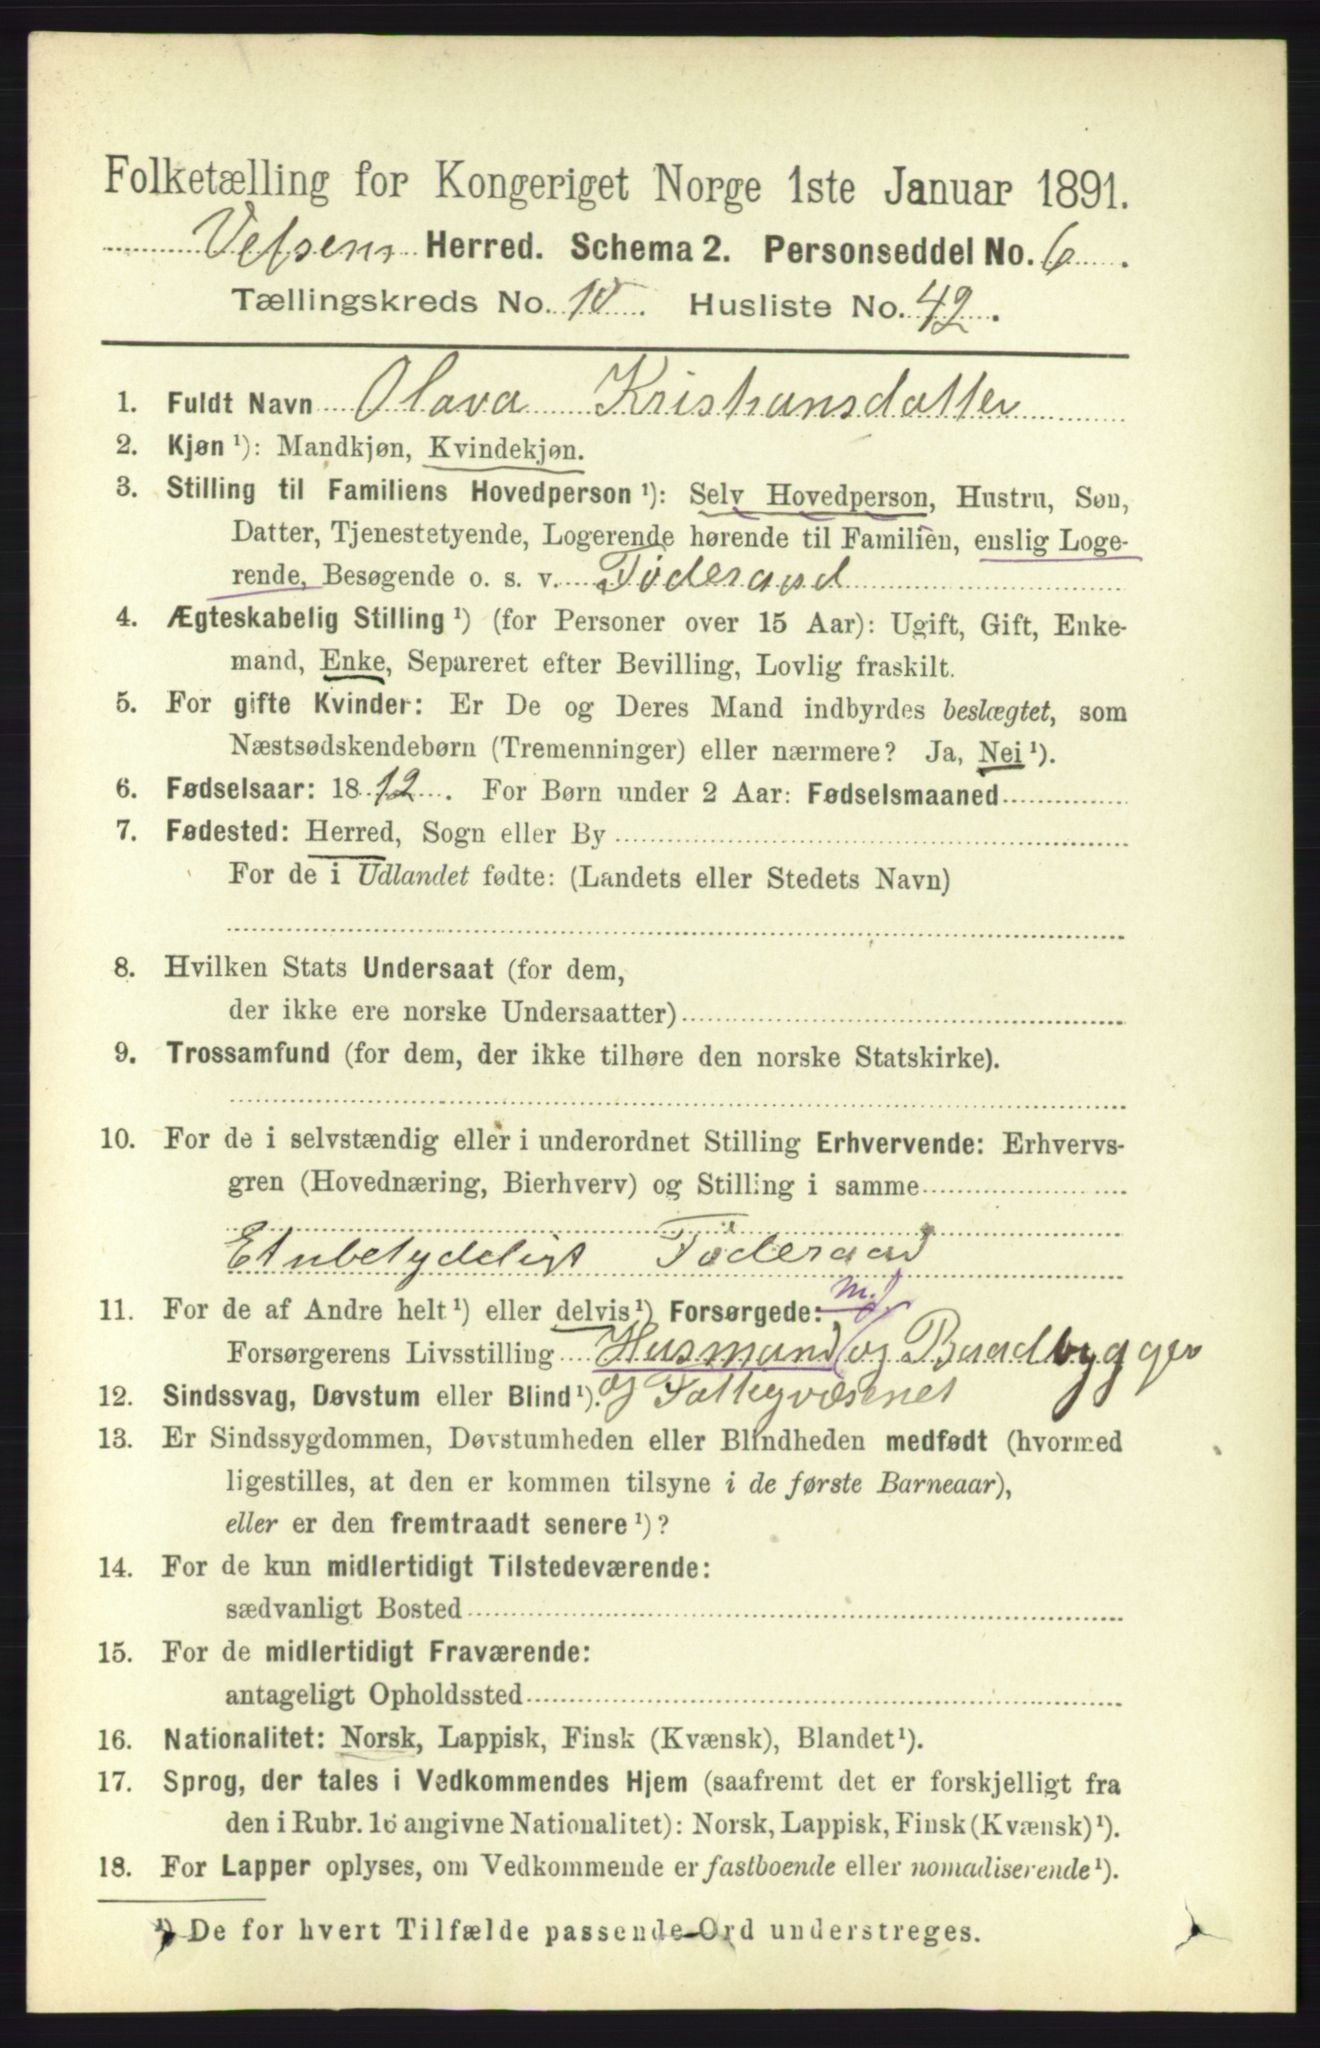 Folketælling for Kongeriget Norge 1ste Januar 1891.
Vefsen Herred. Schema 2. Personseddel No. 6.
Tællingskreds No. 10. Husliste No. 42.
1. Fuldt Navn Olava Kristiansdatter
2. Kjøn ¹): Mandkjøn, Kvindekjøn.
3. Stilling til Familiens Hovedperson ¹): Selv Hovedperson, Hustru, Søn,
Datter, Tjenestetyende, Logerende hørende til Familien, enslig Loge-
rende, Besøgende o. s. v. Föderaad
4. Ægteskabelig Stilling ¹) (for Personer over 15 Aar): Ugift, Gift, Enke-
mand, Enke, Separeret efter Bevilling, Lovlig fraskilt.
5. For gifte Kvinder: Er De og Deres Mand indbyrdes beslægtet, som
Næstsødskendebørn (Tremenninger) eller nærmere? Ja, Nei ¹).
6. Fødselsaar: 1812. For Børn under 2 Aar: Fødselsmaaned
7. Fødested: Herred, Sogn eller By
For de i Udlandet fødte: (Landets eller Stedets Navn)
8. Hvilken Stats Undersaat (for dem,
der ikke ere norske Undersaatter)
9. Trossamfund (for dem, der ikke tilhøre den norske Statskirke).
10. For de i selvstændig eller i underordnet Stilling Erhvervende: Erhvervs-
gren (Hovednæring, Bierhverv) og Stilling i samme
Etubetydeligt Föderaad
11. For de af Andre helt ¹) eller delvis ¹) Forsørgede: m.f
Forsørgerens Livsstilling Husmand og Baadbygger
12. Sindssvag, Døvstum eller Blind ¹). og Fattigvæsenet
13. Er Sindssygdommen, Døvstumheden eller Blindheden medfødt (hvormed
ligestilles, at den er kommen tilsyne i de første Barneaar),
eller er den fremtraadt senere ¹)?
14. For de kun midlertidigt Tilstedeværende:
sædvanligt Bosted
15. For de midlertidigt Fraværende:
antageligt Opholdssted
16. Nationalitet: Norsk, Lappisk, Finsk (Kvænsk), Blandet ¹).
17. Sprog, der tales i Vedkommendes Hjem (saafremt det er forskjelligt fra
den i Rubr. 16 angivne Nationalitet): Norsk, Lappisk, Finsk (Kvænsk) ¹).
18. For Lapper oplyses, om Vedkommende er fastboende eller nomadiserende ¹).
¹) De for hvert Tilfælde passende Ord understreges.